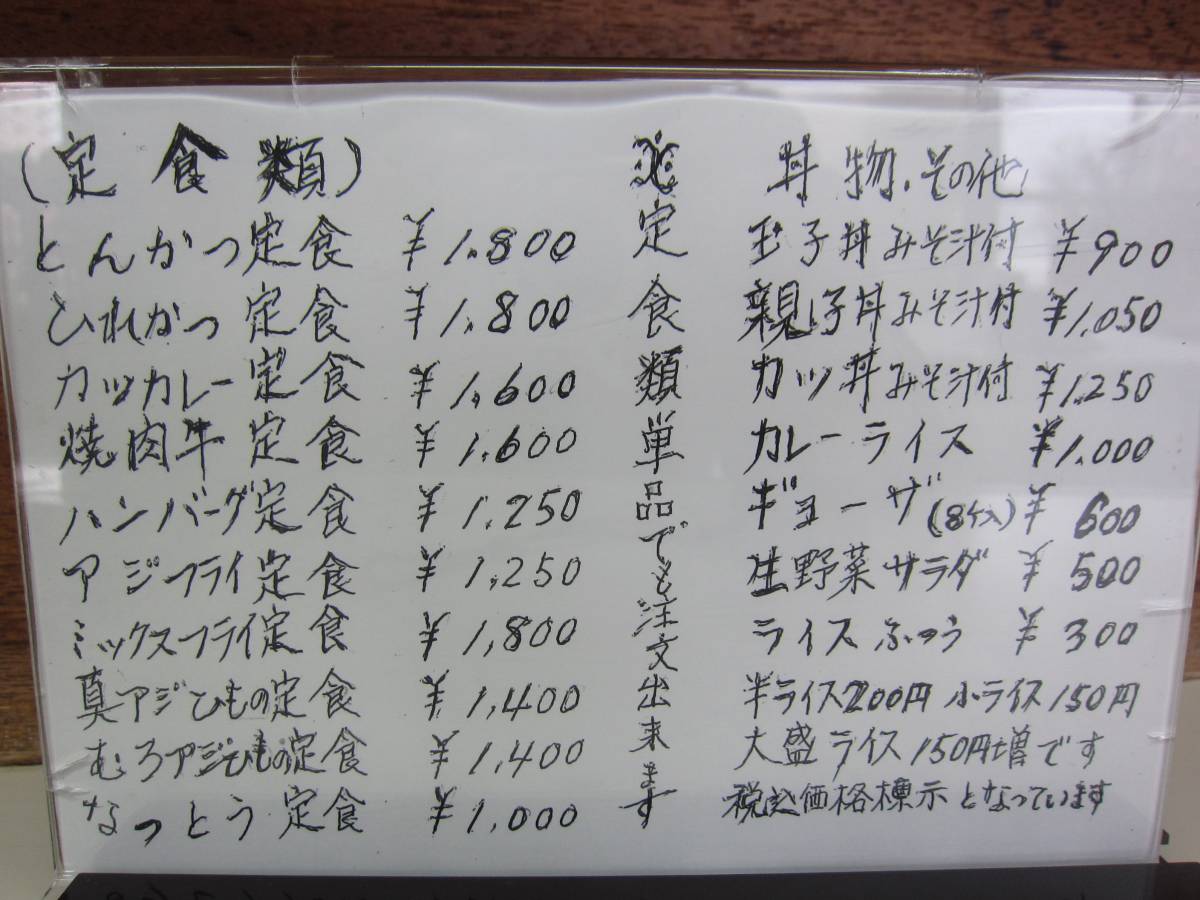 (定食類)
とんかつ定食 ¥1,800
ひれかつ定食 ¥1,800
カツカレー定食 ¥1,600
焼肉牛定食 ¥1,600
ハンバーグ定食 ¥1,250
アジフライ定食 ¥1,250
ミックスフライ定食 ¥1,800
真アジひもの定食 ¥1,400
むろアジひもの定食 ¥1,400
なっとう定食 ¥1,000
※定食類単品でも注文出来ます
丼物.その他
玉子丼みそ汁付 ¥900
親子丼みそ汁付 ¥1,050
カツ丼みそ汁付 ¥1,250
カレーライス ¥1,000
ギョーザ(8ケ入) ¥600
生野菜サラダ ¥500
ライスふつう ¥300
半ライス200円 小ライス150円
大盛ライス150円増です
税込価格標示となっています